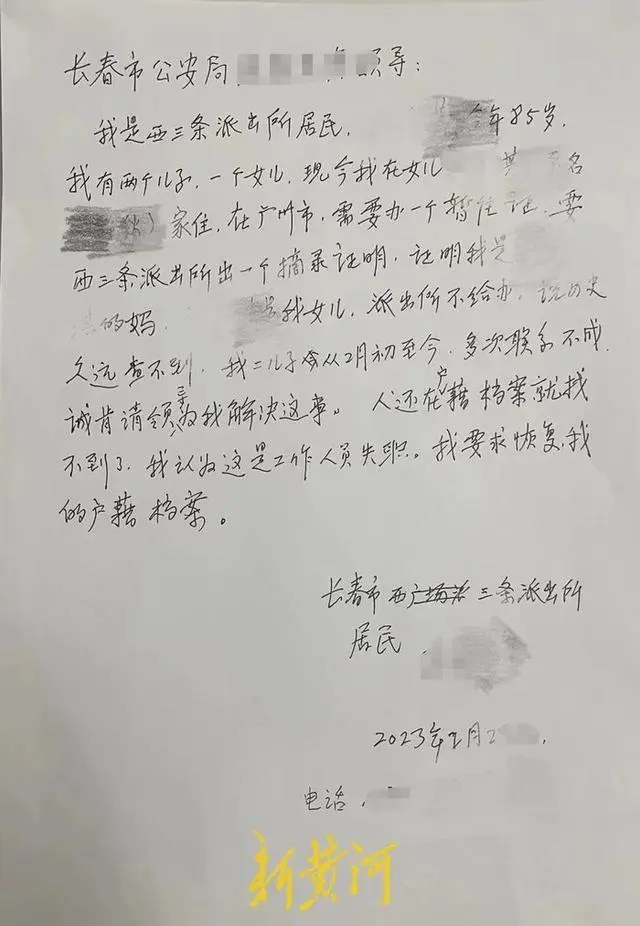 长春市公安局 领导：
我是西三条派出所居民， 今年85岁，
我有两个儿子，一个女儿，现今我在女儿 其 名
家住，在广州市，需要办一个暂住证，要
西三条派出所出一个摘录证明，证明我是
的妈 是我女儿，派出所不给办，说历史
久远查不到，我二儿子从2月初至今，多次联系不成，
诚肯请领导为我解决这事。人还在户藉档案就找
不到了，我认为这是工作人员失职。我要求恢复我
的户藉档案。
长春市西三条派出所
居民
2023年2月2
电话，
新黄河